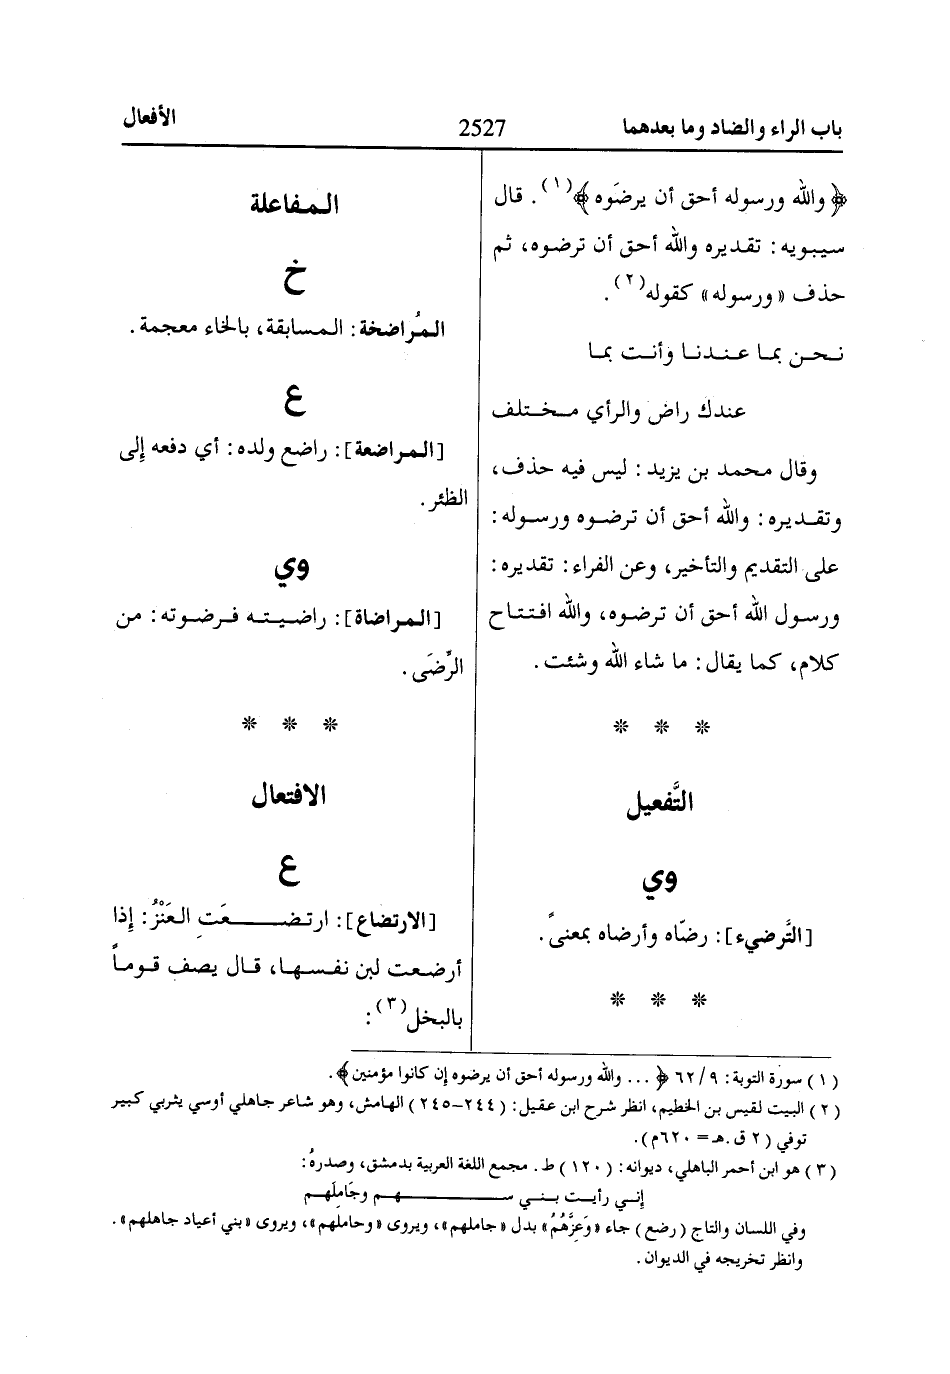 باب الراء والضاد وما بعدهما
2527
الأفعال
﴿ والله ورسوله أحق أن يرضَوه ﴾(١). قال
سيبويه: تقديره والله أحق أن ترضوه، ثم
حذف «ورسوله» كقوله(٢).
نـحـن بمـا عـنـدنـا وأنـت بمـا
عندك راض والرأي مـخـتلف
وقال محمد بن يزيد: ليس فيه حذف،
وتقـديره: والله أحق أن ترضـوه ورسوله:
على التقديم والتأخير، وعن الفراء: تقديره:
ورسول الله أحق أن ترضوه، والله افـتـتاح
كلام، كما يقال: ما شاء الله وشئت.
* * *
التَّفعيل
وي
[التَّرضيء]: رضّاه وأرضاه بمعنىً.
* * *
المفاعلة
خ
المُراضخة: المسابقة، بالخاء معجمة.
ع
[المراضعة]: راضع ولده: أي دفعه إلى
الظئر.
وي
[المراضاة]: راضـيـتـه فـرضوته: من
الرِّضَى.
* * *
الافتعال
ع
[الارتضاع]: ارتـضـعَـتِ العَنْزُ: إذا
أرضـعـت لبن نفسـهـا، قـال يصف قـومـاً
بالبخل(٣):
(١) سورة التوبة: ٩/ ٦٢ ﴿ ... والله ورسوله أحق أن يرضوه إن كانوا مؤمنين ﴾.
(٢) البيت لقيس بن الخطيم، انظر شرح ابن عقيل: (٢٤٤-٢٤٥) الهامش، وهو شاعر جاهلي أوسي يثربي كبير
توفي (٢ ق.هـ = ٦٢٠م).
(٣) هو ابن أحمر الباهلي، ديوانه: (١٢٠) ط. مجمع اللغة العربية بدمشق، وصدرهُ:
إنـي رأيـت بـنـي سـهـم وجَامِلَهـم
وفي اللسان والتاج (رضع) جاء «وَعِزَّهُمُ» بدل «جاملهم»، ويروى «وحاملهم»، ويروى «بني أعياد جاهلهم».
وانظر تخريجه في الديوان.